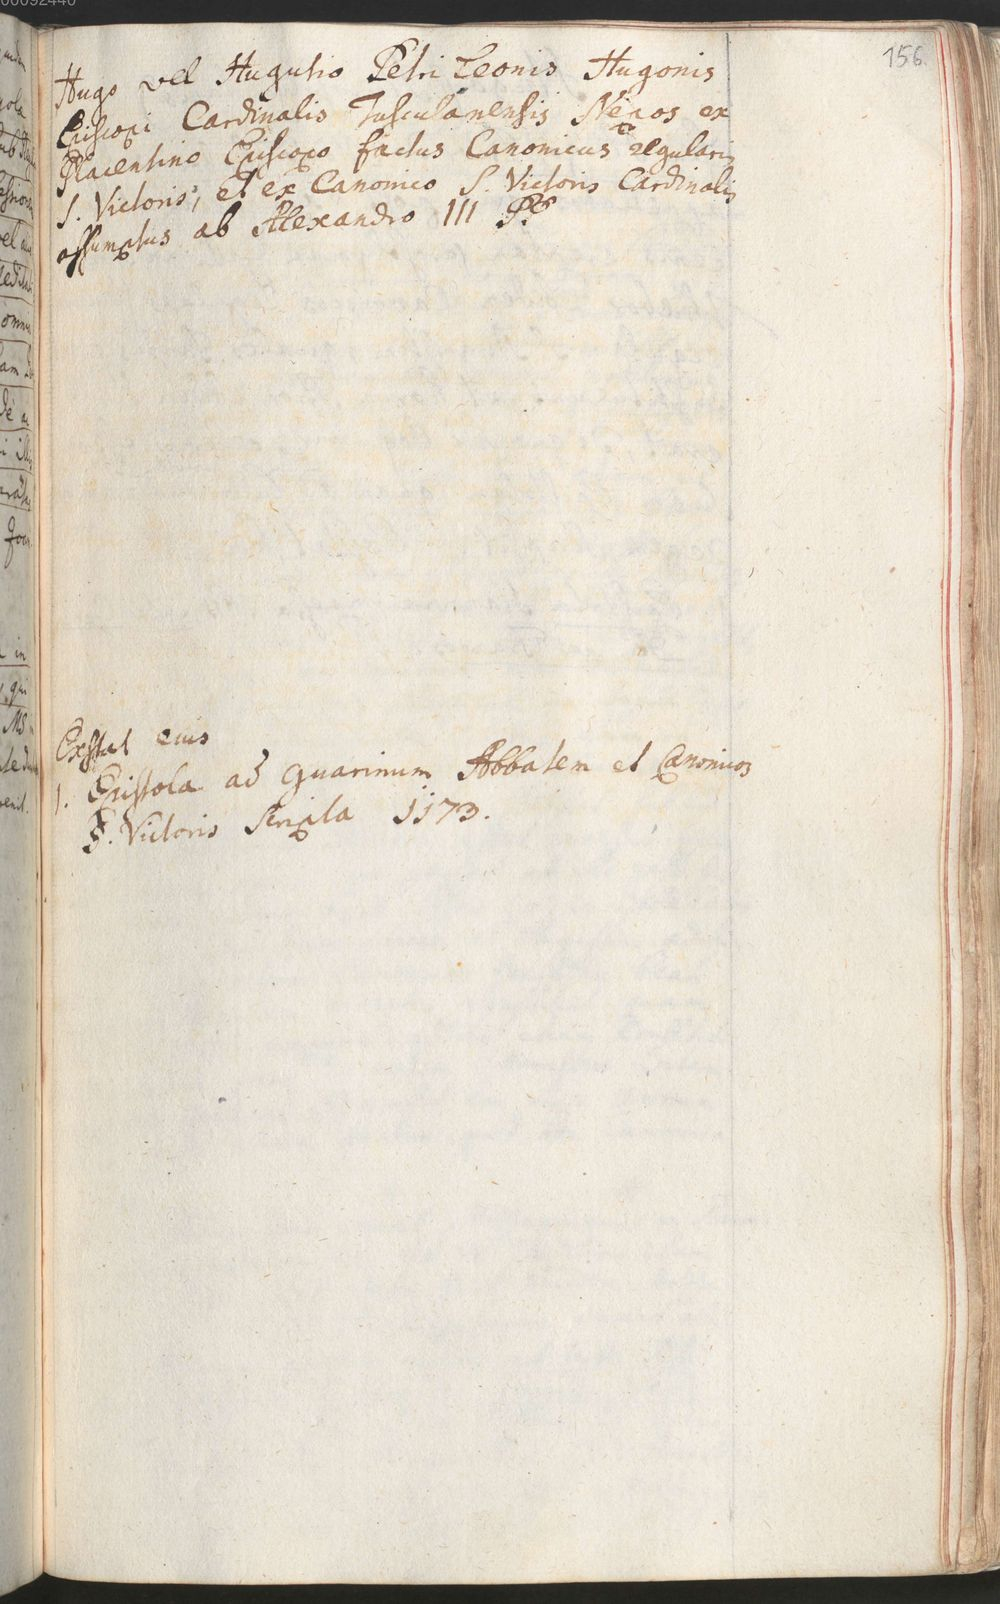 156.
Hugo vel Hugutio Petri Leonis Hugonis
Episcopi Cardinalis Tusculanensis Nepos ex
Placentino Episcopo factus Canonicus regularis
S. Victoris, et ex Canonico S. Victoris Cardinalis
assumptus ab Alexandro III
Exstat eius
1. Epistola ad Guarinum Abbatem et Canonicos
S. Victoris scripta 1173.